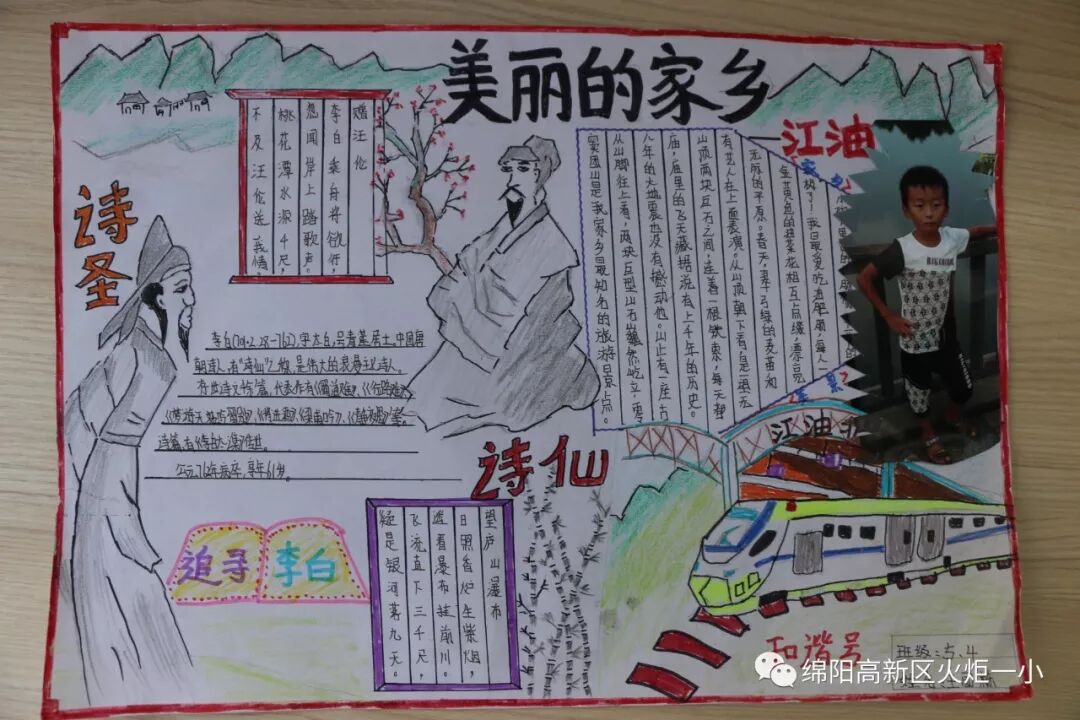 美丽的家乡
江油
诗圣
赠汪伦
李白乘舟将欲行，
忽闻岸上踏歌声。
桃花潭水深千尺，
不及汪伦送我情。
李白(701.2.28-762),字太白,号青莲居士,中国唐
朝诗人,有“诗仙”之称,是伟大的浪漫主义诗人。
存世诗文千篇,代表作有《蜀道难》、《行路难》、
《将进酒》、
诗篇,有《李太白集》传世。
公元762年病卒,享年61岁。
无际的平原。春天,翠绿的麦苗和
金黄色的油菜花相互点缀,漂亮
有艺人在上面表演。从山顶朝下看,是一望无
山顶两块巨石之间,连着一根铁索,每天都
庙,庙里的飞天藏据说有上千年的历史。
八年的大地震也没有撼动他。山上有一座古
从山脚往上看,两块巨型山石巍然屹立,零
窦圌山是我家乡最知名的旅游景点。
诗仙
江油北
追寻李白
望庐山瀑布
日照香炉生紫烟，
遥看瀑布挂前川。
飞流直下三千尺，
疑是银河落九天。
和谐号
班级:五.4
绵阳高新区火炬一小